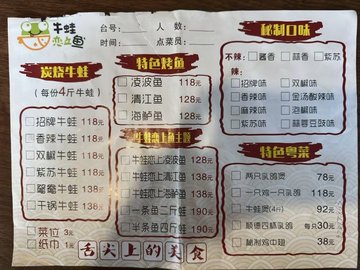 牛蛙
恋上鱼
台号: 人 数:
时间: 点菜员:
炭烧牛蛙
(每份4斤牛蛙)
招牌牛蛙 118元
香辣牛蛙 118元
双椒牛蛙 118元
紫苏牛蛙 118元
鸳鸯牛蛙 138元
干锅牛蛙 138元
菜位 3元
纸巾 1元
特色烤鱼
凌波鱼 118元
清江鱼 118元
海鲈鱼 118元
牛蛙恋上鱼主题
牛蛙恋上凌波鱼 128元
牛蛙恋上清江鱼 128元
牛蛙恋上海鲈鱼 138元
一条鱼二斤蛙 190元
一条鱼四斤蛙 190元
舌尖上的美食
秘制口味
不辣: 酱香 蒜香 紫苏
辣:
招牌味 双椒味
香辣味 金汤酸辣味
麻辣味 泡椒味
紫苏味 蒜蓉豆豉味
特色粤菜
两只乳鸽煲 78元
一只鸡一只乳鸽 118元
牛蛙煲(4斤) 92元
顺德四杯乳鸽 每只30元
秘制鸡中翅 38元